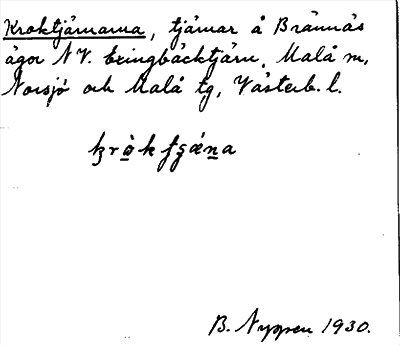 Kroktjärnarna, tjärnar å Brännäs
ägor N V. Exingbäcktjärn, Malå sn,
Norsjö och Malå tg, Västerb. l.
B. Nyman 1930.